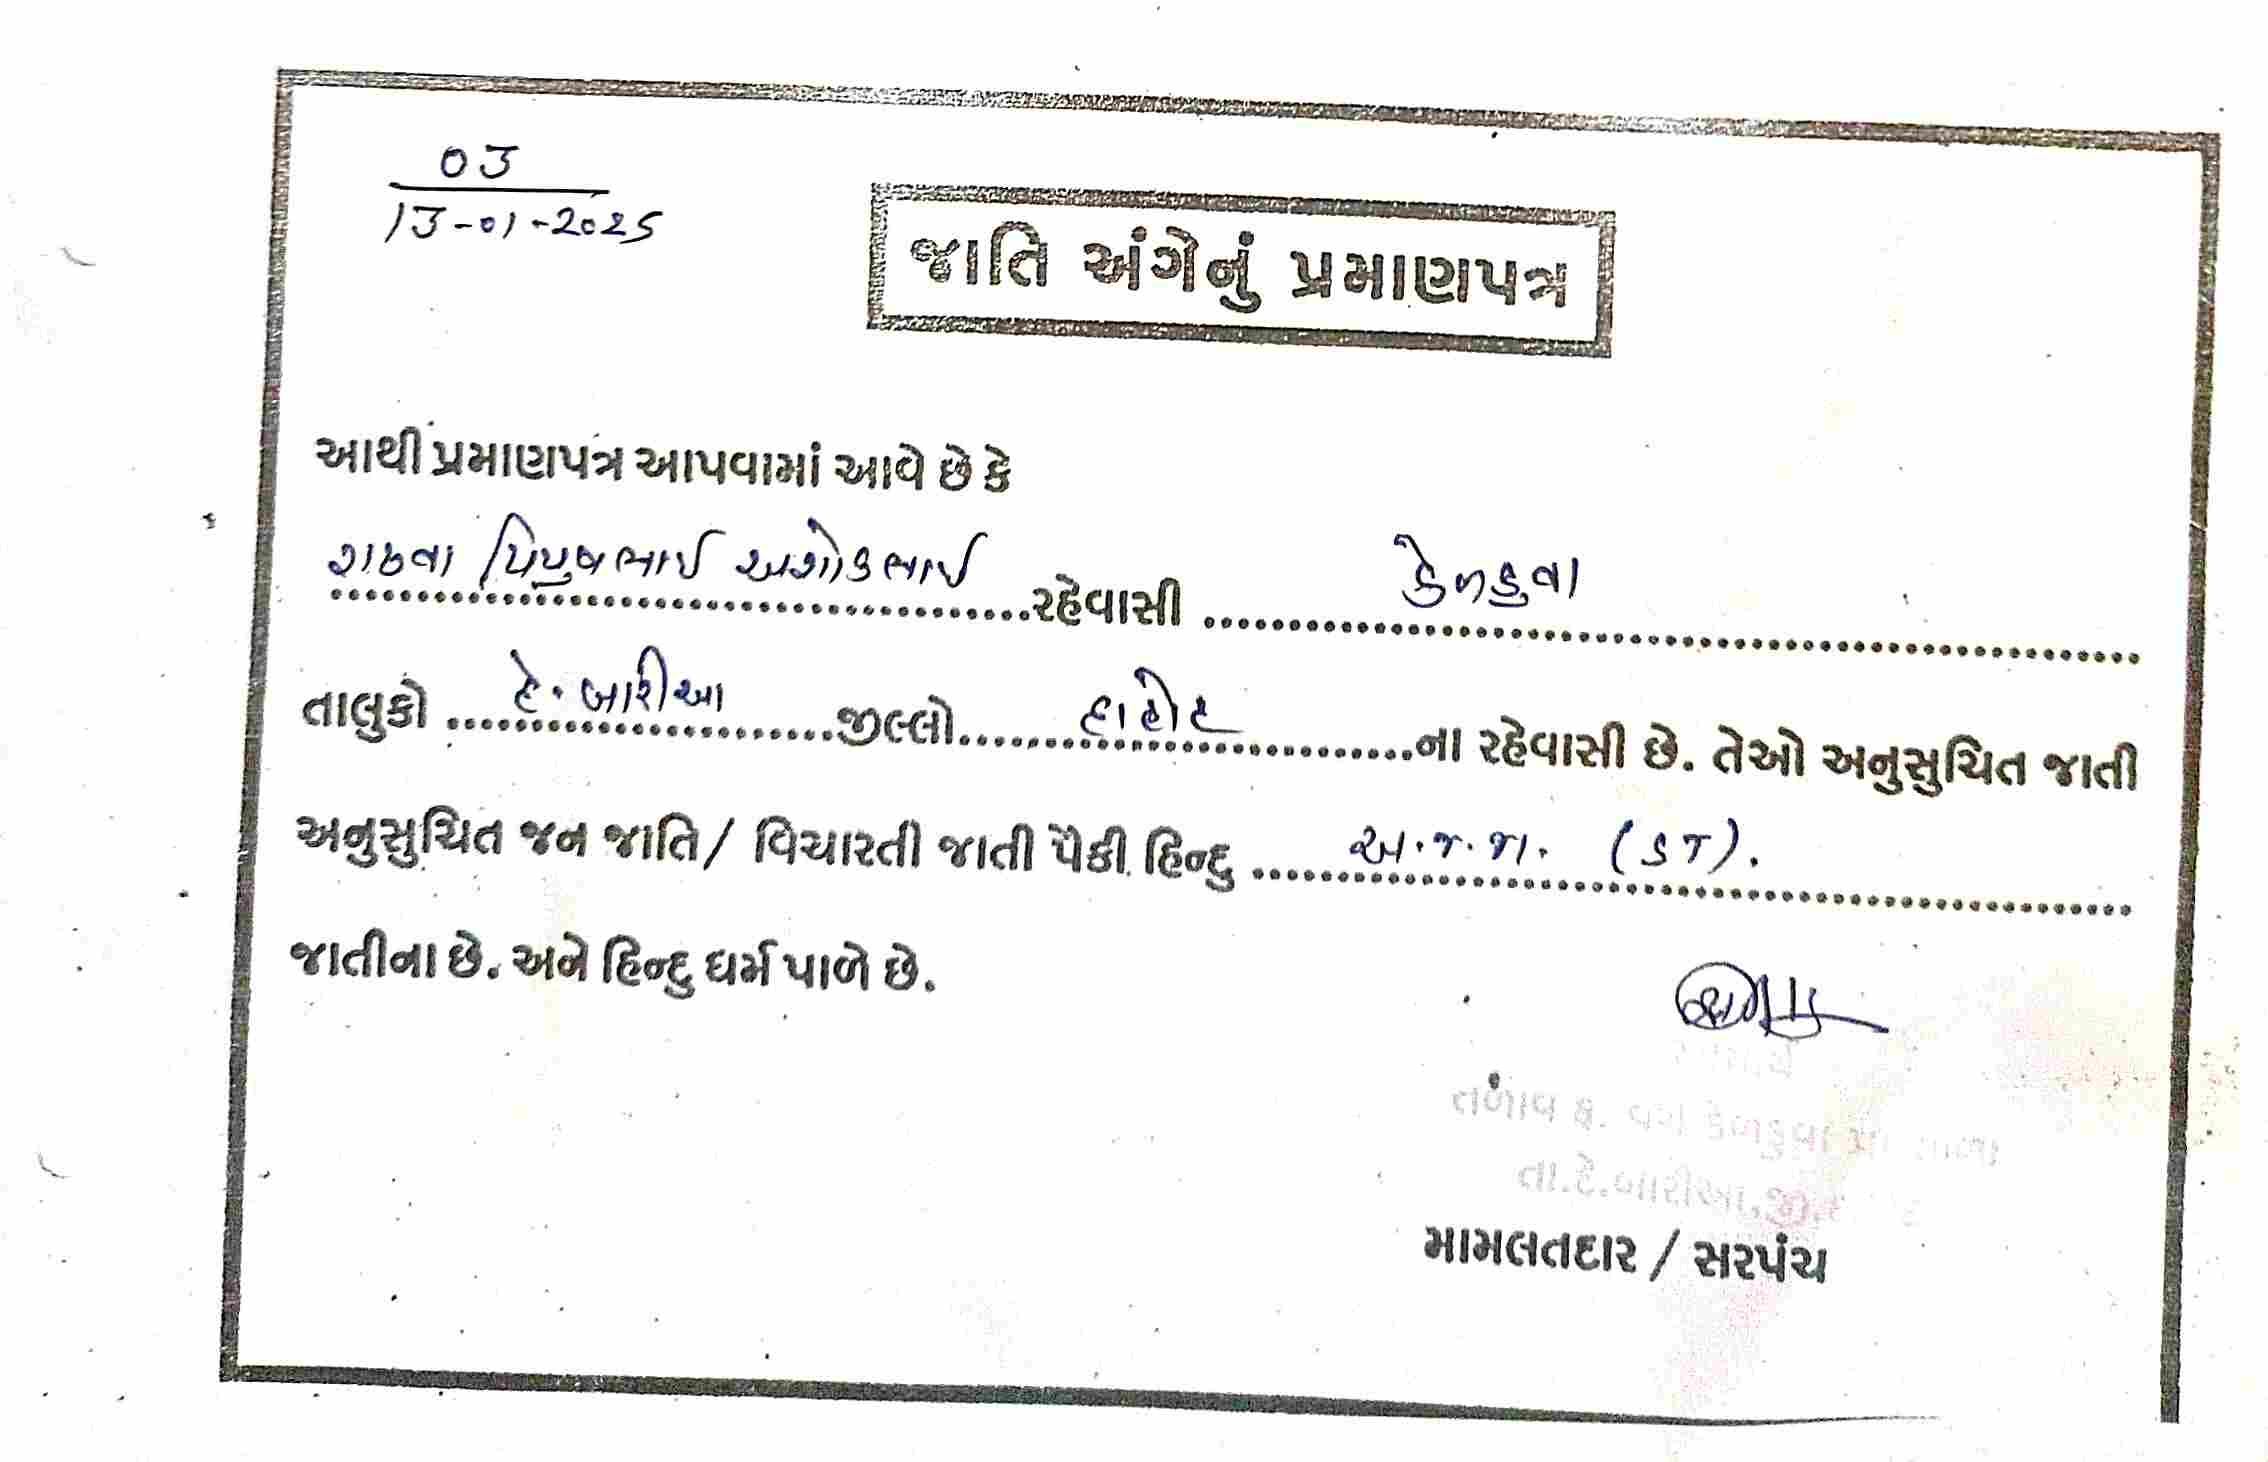 03
13-01-2025
જાતિ અંગેનું પ્રમાણપત્ર
આથી પ્રમાણપત્ર આપવામાં આવે છે કે
રાઠવા પિયુષભાઈ અશોકભાઈ રહેવાસી કેળકુવા
તાલુકો દે.બારીઆ જીલ્લો દાહોદ ના રહેવાસી છે. તેઓ અનુસુચિત જાતી
અનુસુચિત જન જાતિ/ વિચારતી જાતી પૈકી હિન્દુ અ.જ.જા. (ST).
જાતીના છે. અને હિન્દુ ધર્મ પાળે છે.
તળાવ ફ. વર્ગ કેળકુવા
તા.દે.બારીઆ,જી.
મામલતદાર / સરપંચ